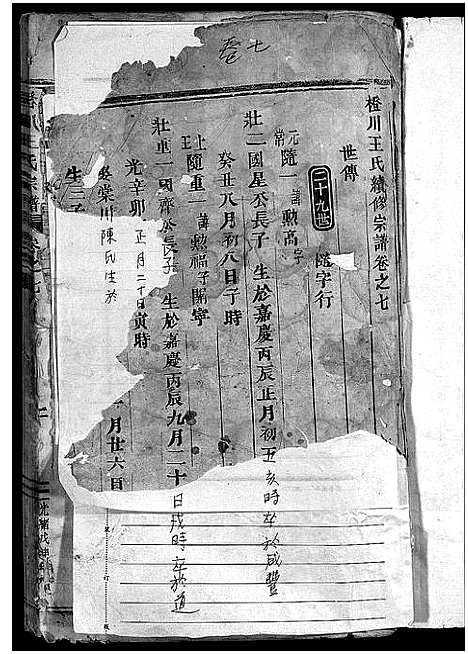 七
橙川王氏續修宗譜卷之七
世傳
二十九世 隨字行
元常 隨一 諱勲高字
壯二國星公長子 生於嘉慶丙辰正月初五亥時卒於咸豐
癸丑八月初八日子時
上 隨重一 諱勲福子開寧
壯重一國齊公長子 生於嘉慶丙辰九月二十日戌時卒於道
光辛卯 正月二十日寅時
娶棠川陳氏生於
生三子
月廿六日
王氏宗譜 卷之七